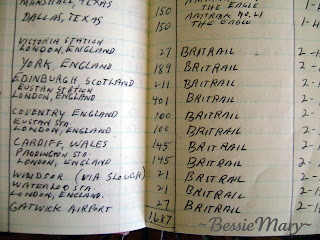 MARSHALL, TEXAS
DALLAS, TEXAS 150 AMTRAK NO. 21
150 THE EAGLE 1-4
VICTORIA STATION
LONDON, ENGLAND 27 BRITRAIL 2-
YORK, ENGLAND 189 BRITRAIL 2-
EDINBURGH, SCOTLAND 211 BRITRAIL 2-
EUSTAN STATION
LONDON, ENGLAND 401 BRITRAIL 2-
COVENTRY ENGLAND 100 BRITRAIL 2-
EUSTAN STA.
LONDON, ENGLAND 100 BRITRAIL 2-
CARDIFF, WALES 145 BRITRAIL 2-
PADDINGTON STA
LONDON, ENGLAND 145 BRITRAIL 2-
WINDSOR (VIA SLOUGH) 21 BRITRAIL 2-
WATERLOO STA.
LONDON, ENGLAND. 21 BRITRAIL 2-
GATWICK AIRPORT 27 BRITRAIL 2-
1,687
~BessieMary~